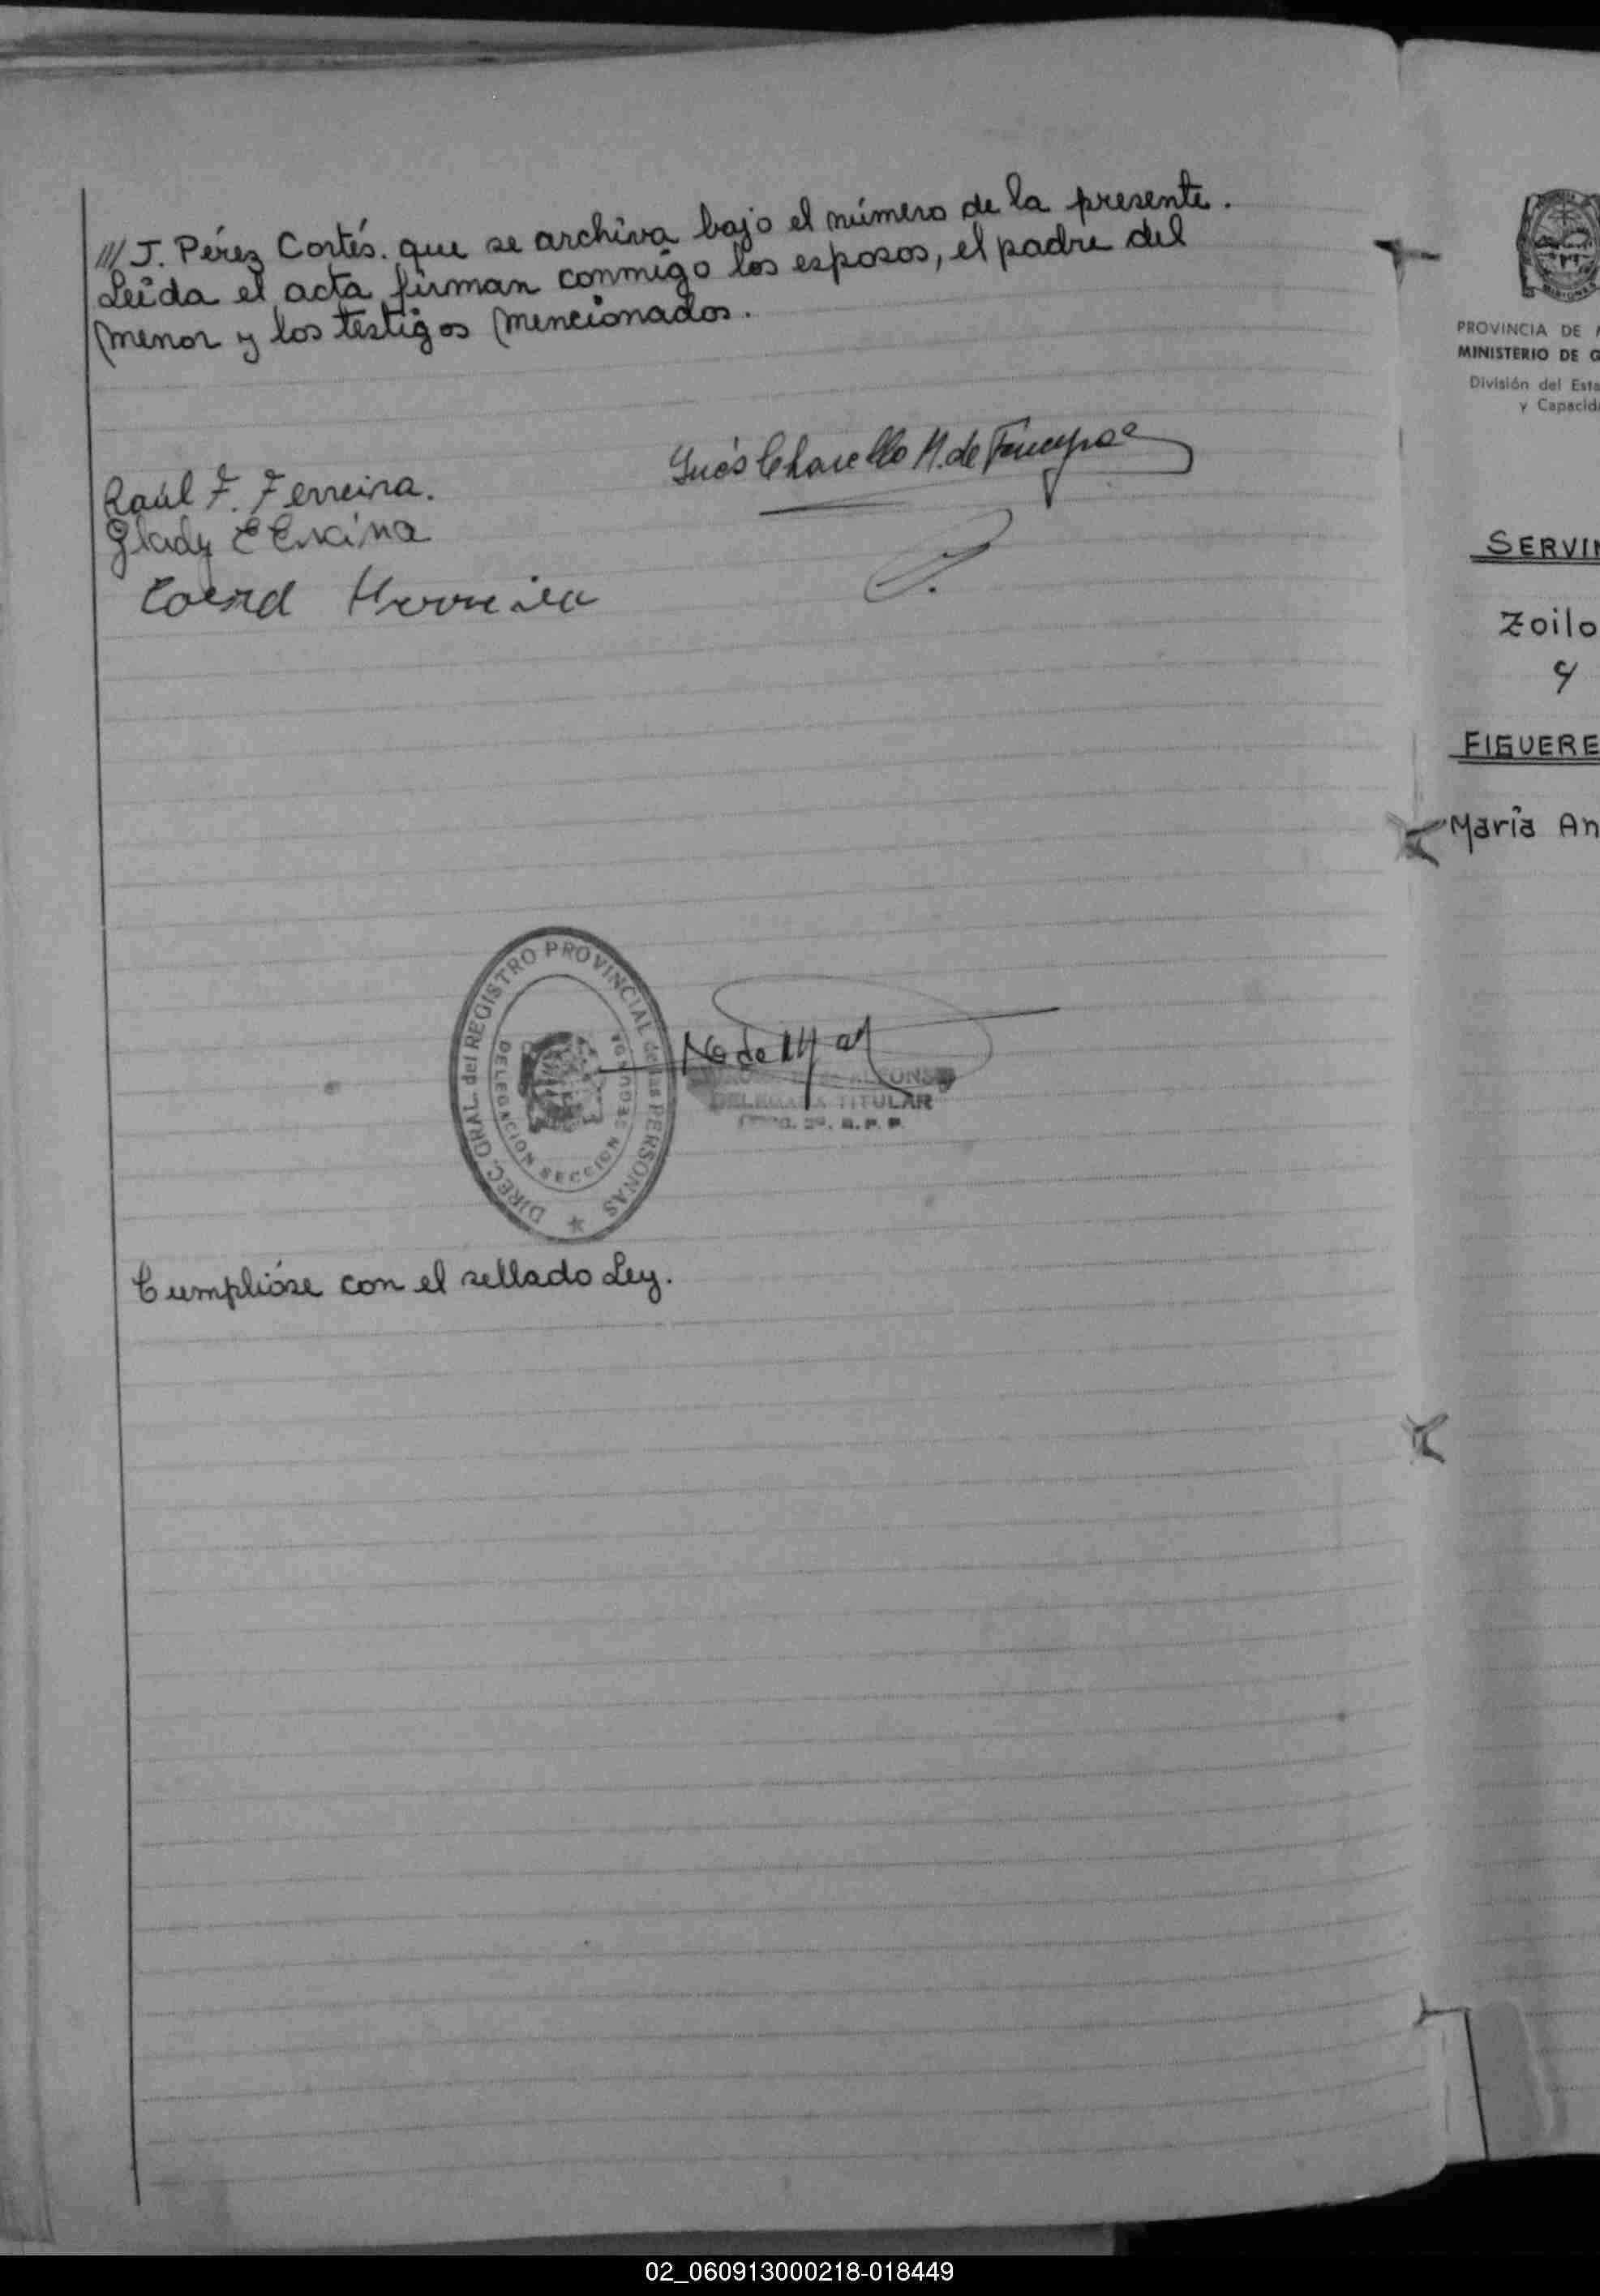 /// J. Pérez Cortés. que se archiva bajo el número de la presente.
Leída el acta firman conmigo los esposos, el padre del
menor y los testigos mencionados.
Raúl F. Ferreira.
Inés Charello M. de
Glady E Encina
DIREC. GRAL. del REGISTRO PROVINCIAL de las PERSONAS
DELEGACION SECCION SEGUNDA
ALFONS
DELEGADA TITULAR
R. P. P.
Cumplióse con el sellado Ley.
MISIONES
PROVINCIA DE
MINISTERIO DE G
División del Esta
y Capacid
SERVIN
Zoilo
y
FIGUERE
María An
02_060913000218-018449